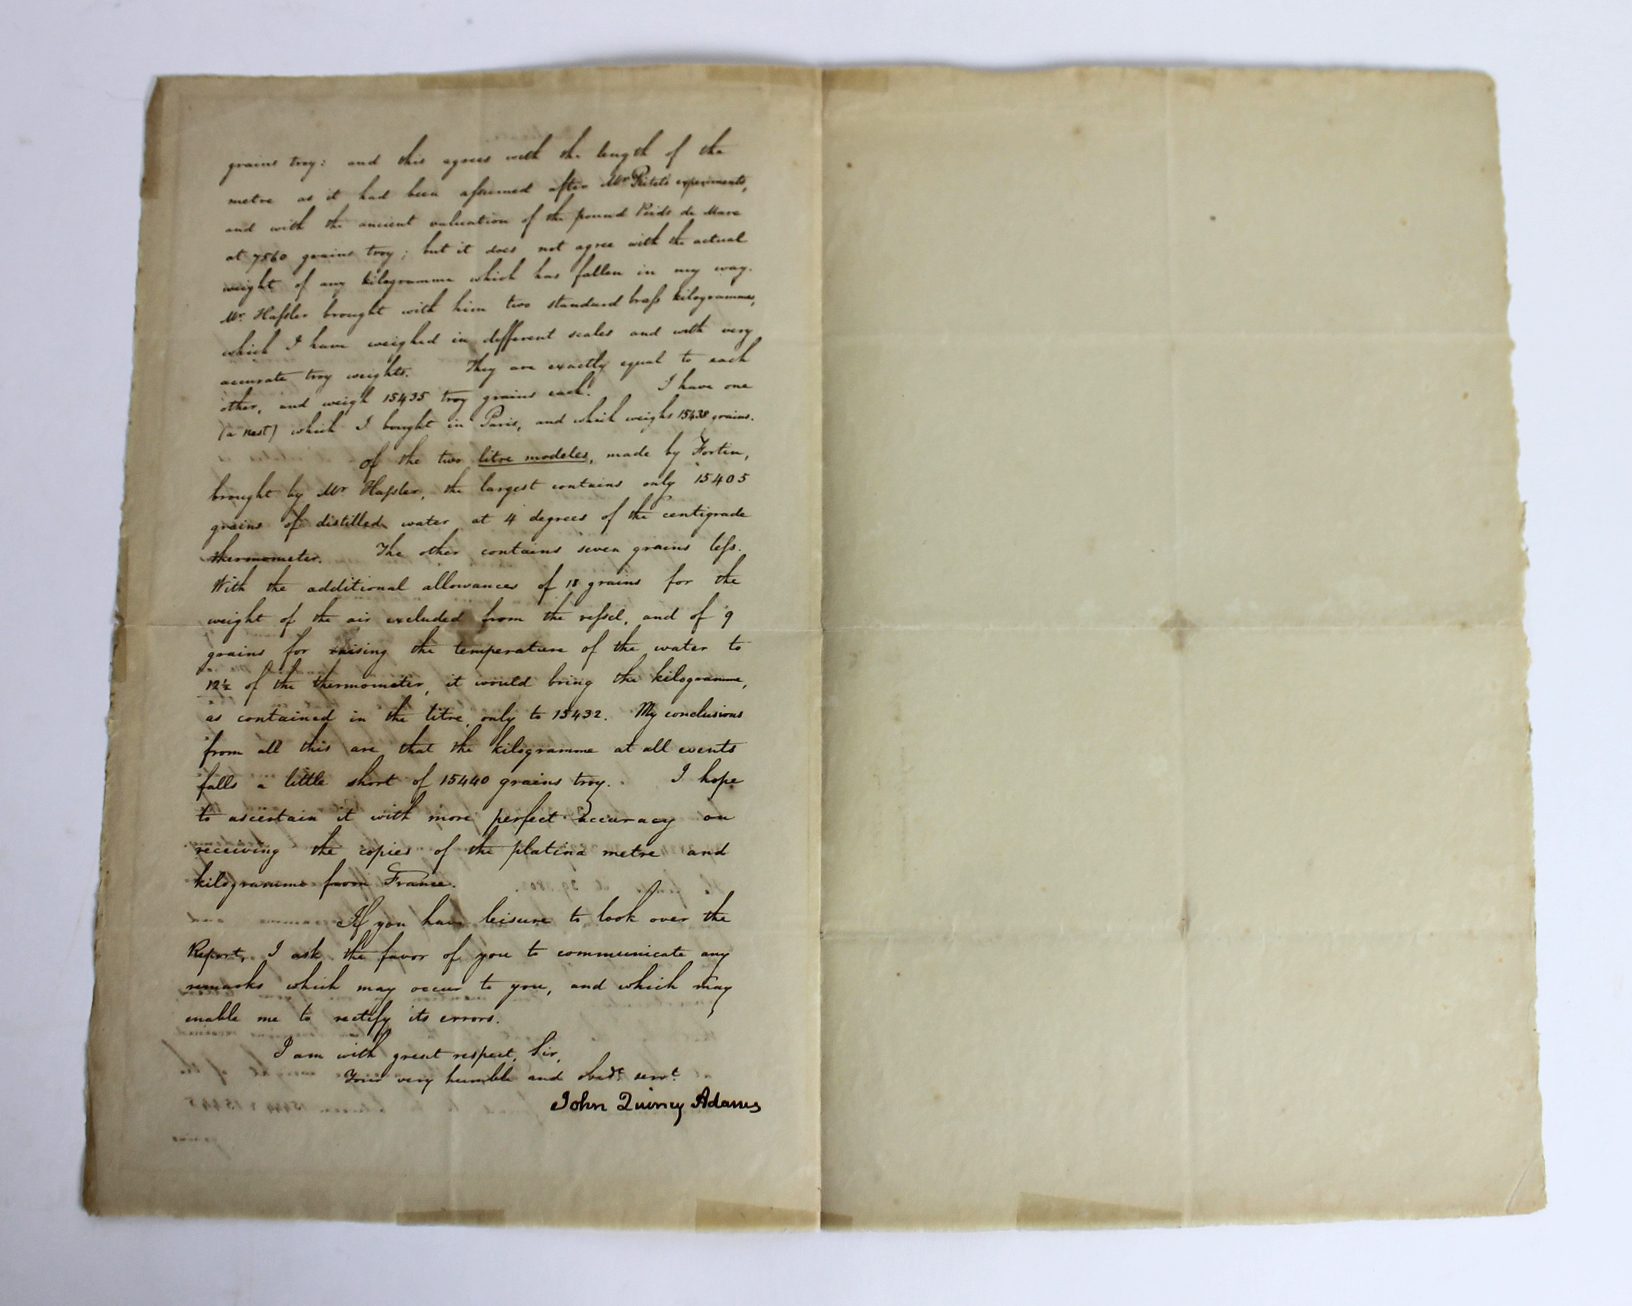 grains troy: and this agrees with the length of the
metre as it had been assumed after Mr Pictet's experiments,
and with the ancient valuation of the pound Poids de Marc
at 7560 grains troy; but it does not agree with the actual
weight of any kilogramme which has fallen in my way.
Mr. Hassler brought with him two standard brass kilogrammes,
which I have weighed in different scales and with very
accurate troy weights. They are exactly equal to each
other, and weigh 15435 troy grains each. I have one
(a nest) which I bought in Paris, and which weighs 15438 grains.
Of the two litre modeles, made by Fortin,
brought by Mr Hassler, the largest contains only 15405
grains of distilled water at 4 degrees of the centigrade
thermometer. The other contains seven grains less.
With the additional allowances of 18 grains for the
weight of the air excluded from the vessel, and of 9
grains for raising the temperature of the water to
12½ of the thermometer, it would bring the kilogramme,
as contained in the litre, only to 15432. My conclusions
from all this are that the kilogramme at all events
falls a little short of 15440 grains troy. I hope
to ascertain it with more perfect accuracy on
receiving the copies of the platina metre and
kilogramme from France.
If you have leisure to look over the
Report, I ask the favor of you to communicate any
remarks which may occur to you, and which may
enable me to rectify its errors.
I am with great respect, Sir,
Your very humble and obedt. servt.
John Quincy Adams